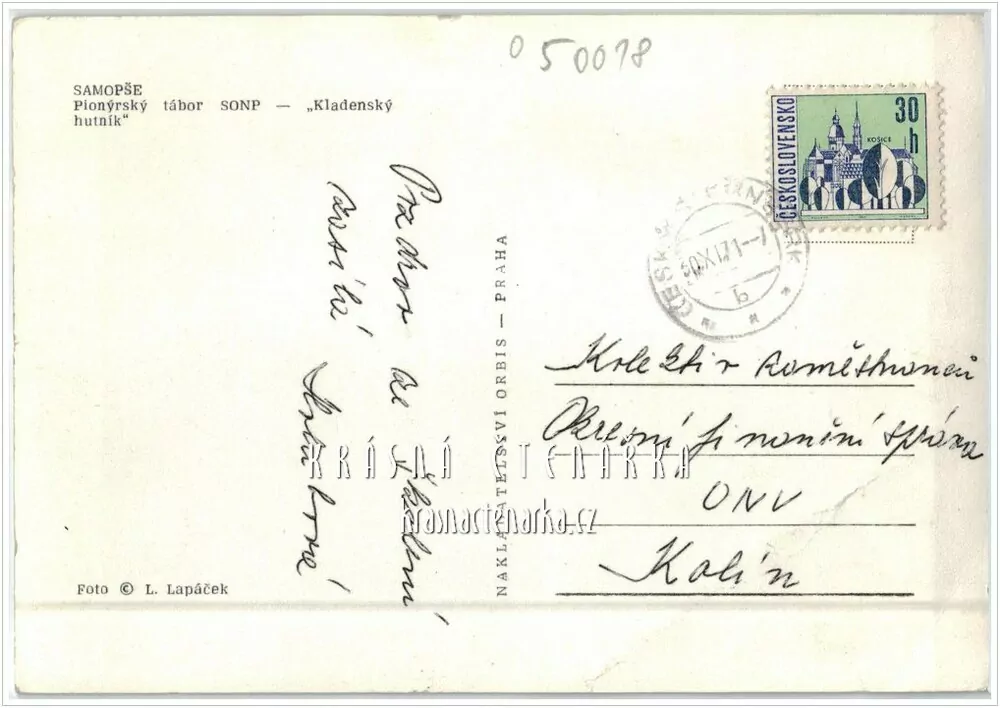 050018
SAMOPŠE
Pionýrský tábor SONP — „Kladenský
hutník"
ČESKOSLOVENSKO
30
h
KOŠICE
Pozdrav ze školení
zasílá
NAKLADATELSTVÍ ORBIS — PRAHA
ČESKÝ
XI.71-7
b
Kolektiv zaměstnanců
Okresní finanční správa
ONV
Kolín
KRÁSNÁ ČTENÁŘKA
krasnactenarka.cz
Foto © L. Lapáček